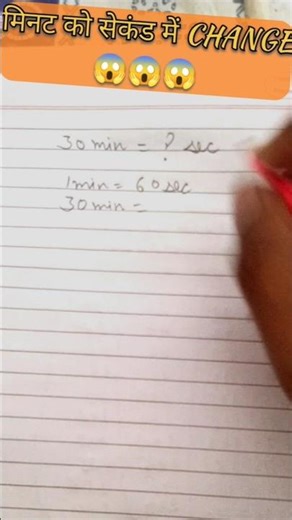 मिनट को सेकंड में CHANGE
30 min = ? sec
1 min = 60 sec
30 min =